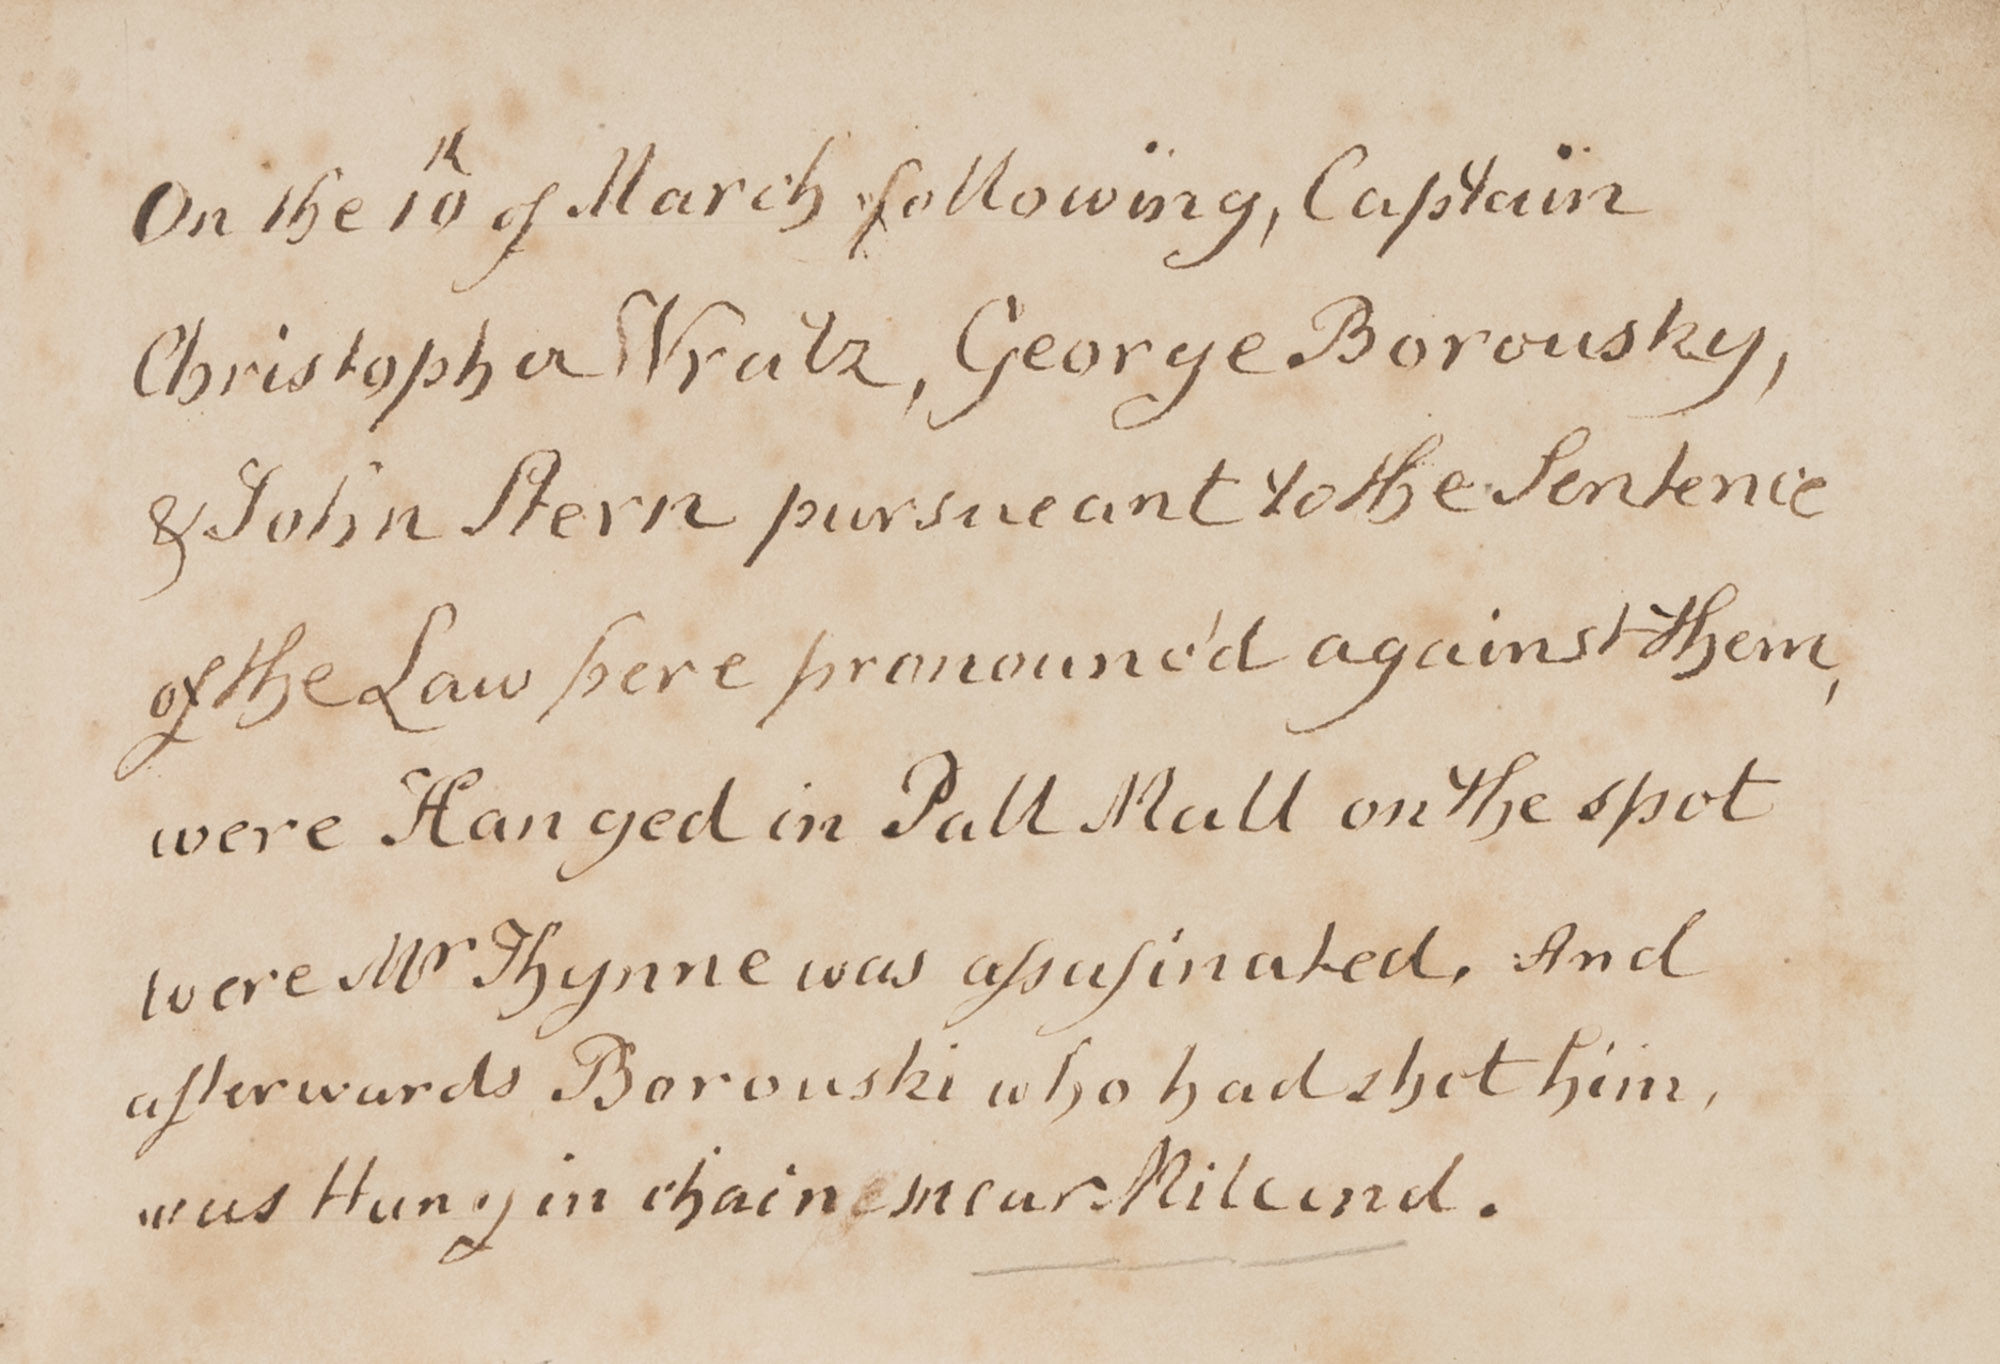 On the 10th of March following, Captain
Christopher Vratz, George Borousky,
& John Stern pursueant to the Sentence
of the Law here pronounc'd against them,
were Hanged in Pall Mall on the spot
were Mr Thynne was assasinated. And
afterwards Borouski who had shot him,
was Hung in chains near Mileend.